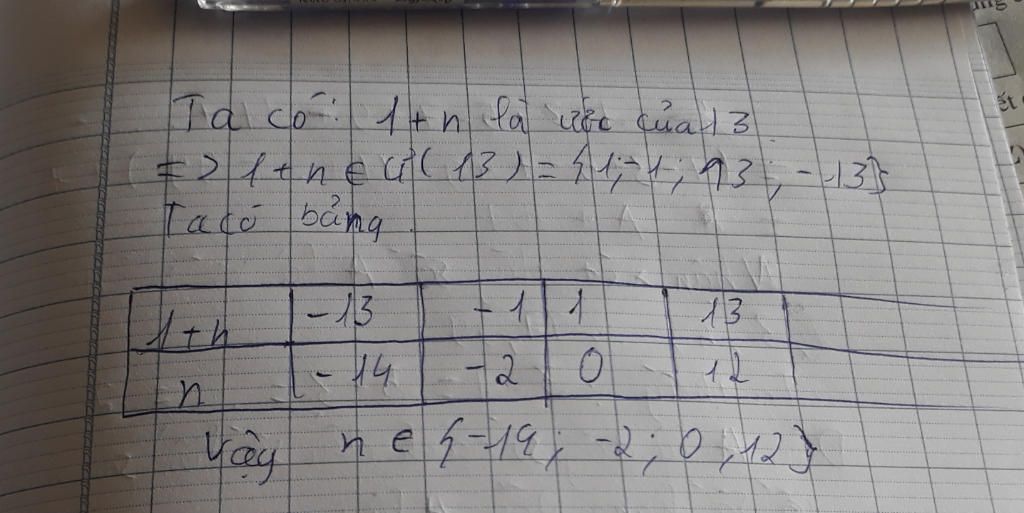 Ta có: 1+n là ước của 13
=> 1+n ∈ Ư(13) = {1; -1; 13; -13}
Ta có bảng
1+n -13 -1 1 13
n -14 -2 0 12
Vậy n ∈ {-14; -2; 0; 12}